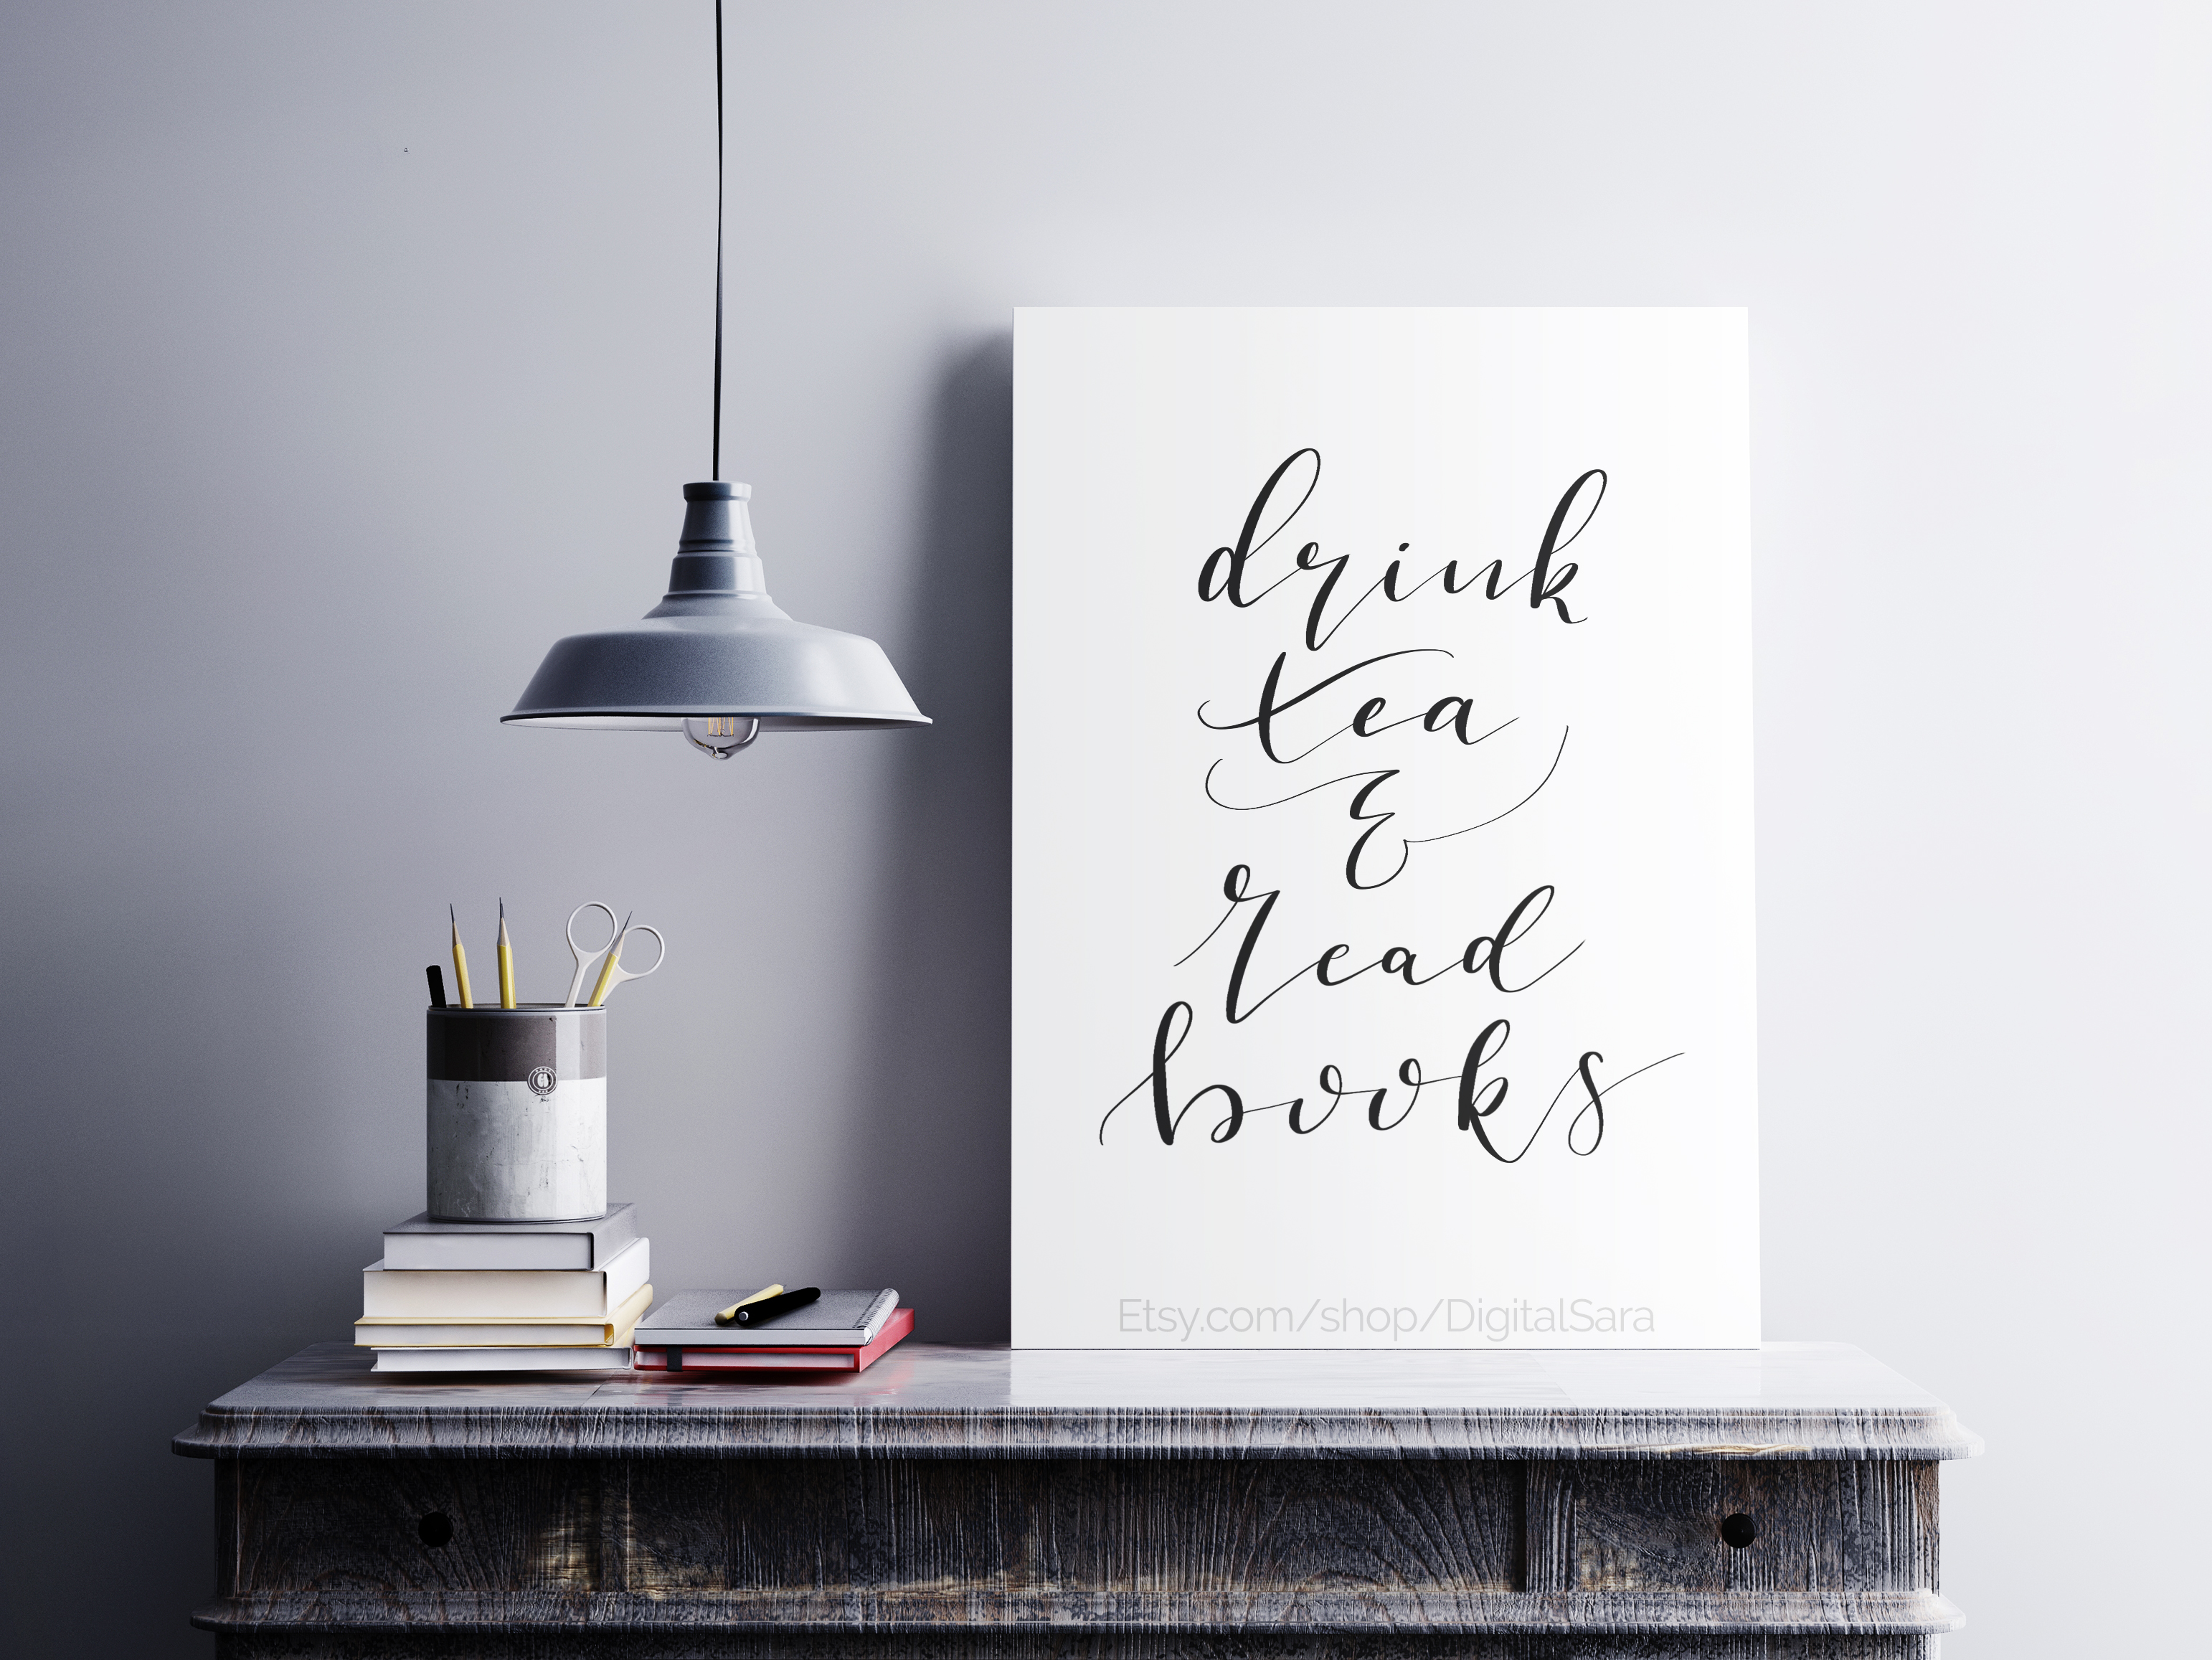 drink
tea
&
read
books
Etsy.com/shop/DigitalSara